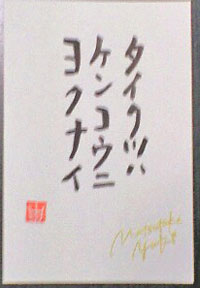 タイクツハ
ケンコウニ
ヨクナイ